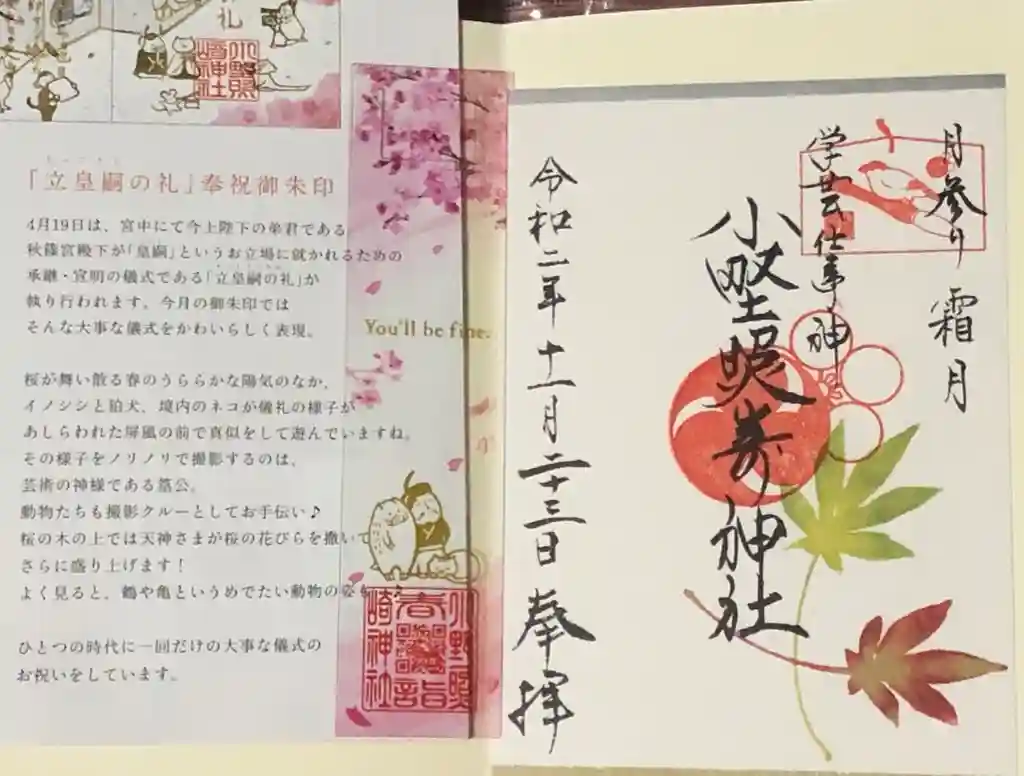 礼
小野照
崎神社
「立皇嗣の礼」奉祝御朱印
4月19日は、宮中にて今上陛下の弟君である
秋篠宮殿下が「皇嗣」というお立場に就かれるための
承継・宣明の儀式である「立皇嗣の礼」が
執り行われます。今月の御朱印では
そんな大事な儀式をかわいらしく表現。
桜が舞い散る春のうららかな陽気のなか、
イノシシと狛犬、境内のネコが儀礼の様子が
あしらわれた屏風の前で真似をして遊んでいますね。
その様子をノリノリで撮影するのは、
芸術の神様である篁公。
動物たちも撮影クルーとしてお手伝い♪
桜の木の上では天神さまが桜の花びらを撒いて
さらに盛り上げます！
よく見ると、鶴や亀というめでたい動物の姿も…♪
ひとつの時代に一回だけの大事な儀式の
お祝いをしています。
You'll be fine.
小野照
春詣
崎神社
月参り 霜月
学芸仕事神
小野照崎神社
令和二年十一月二十三日 奉拝